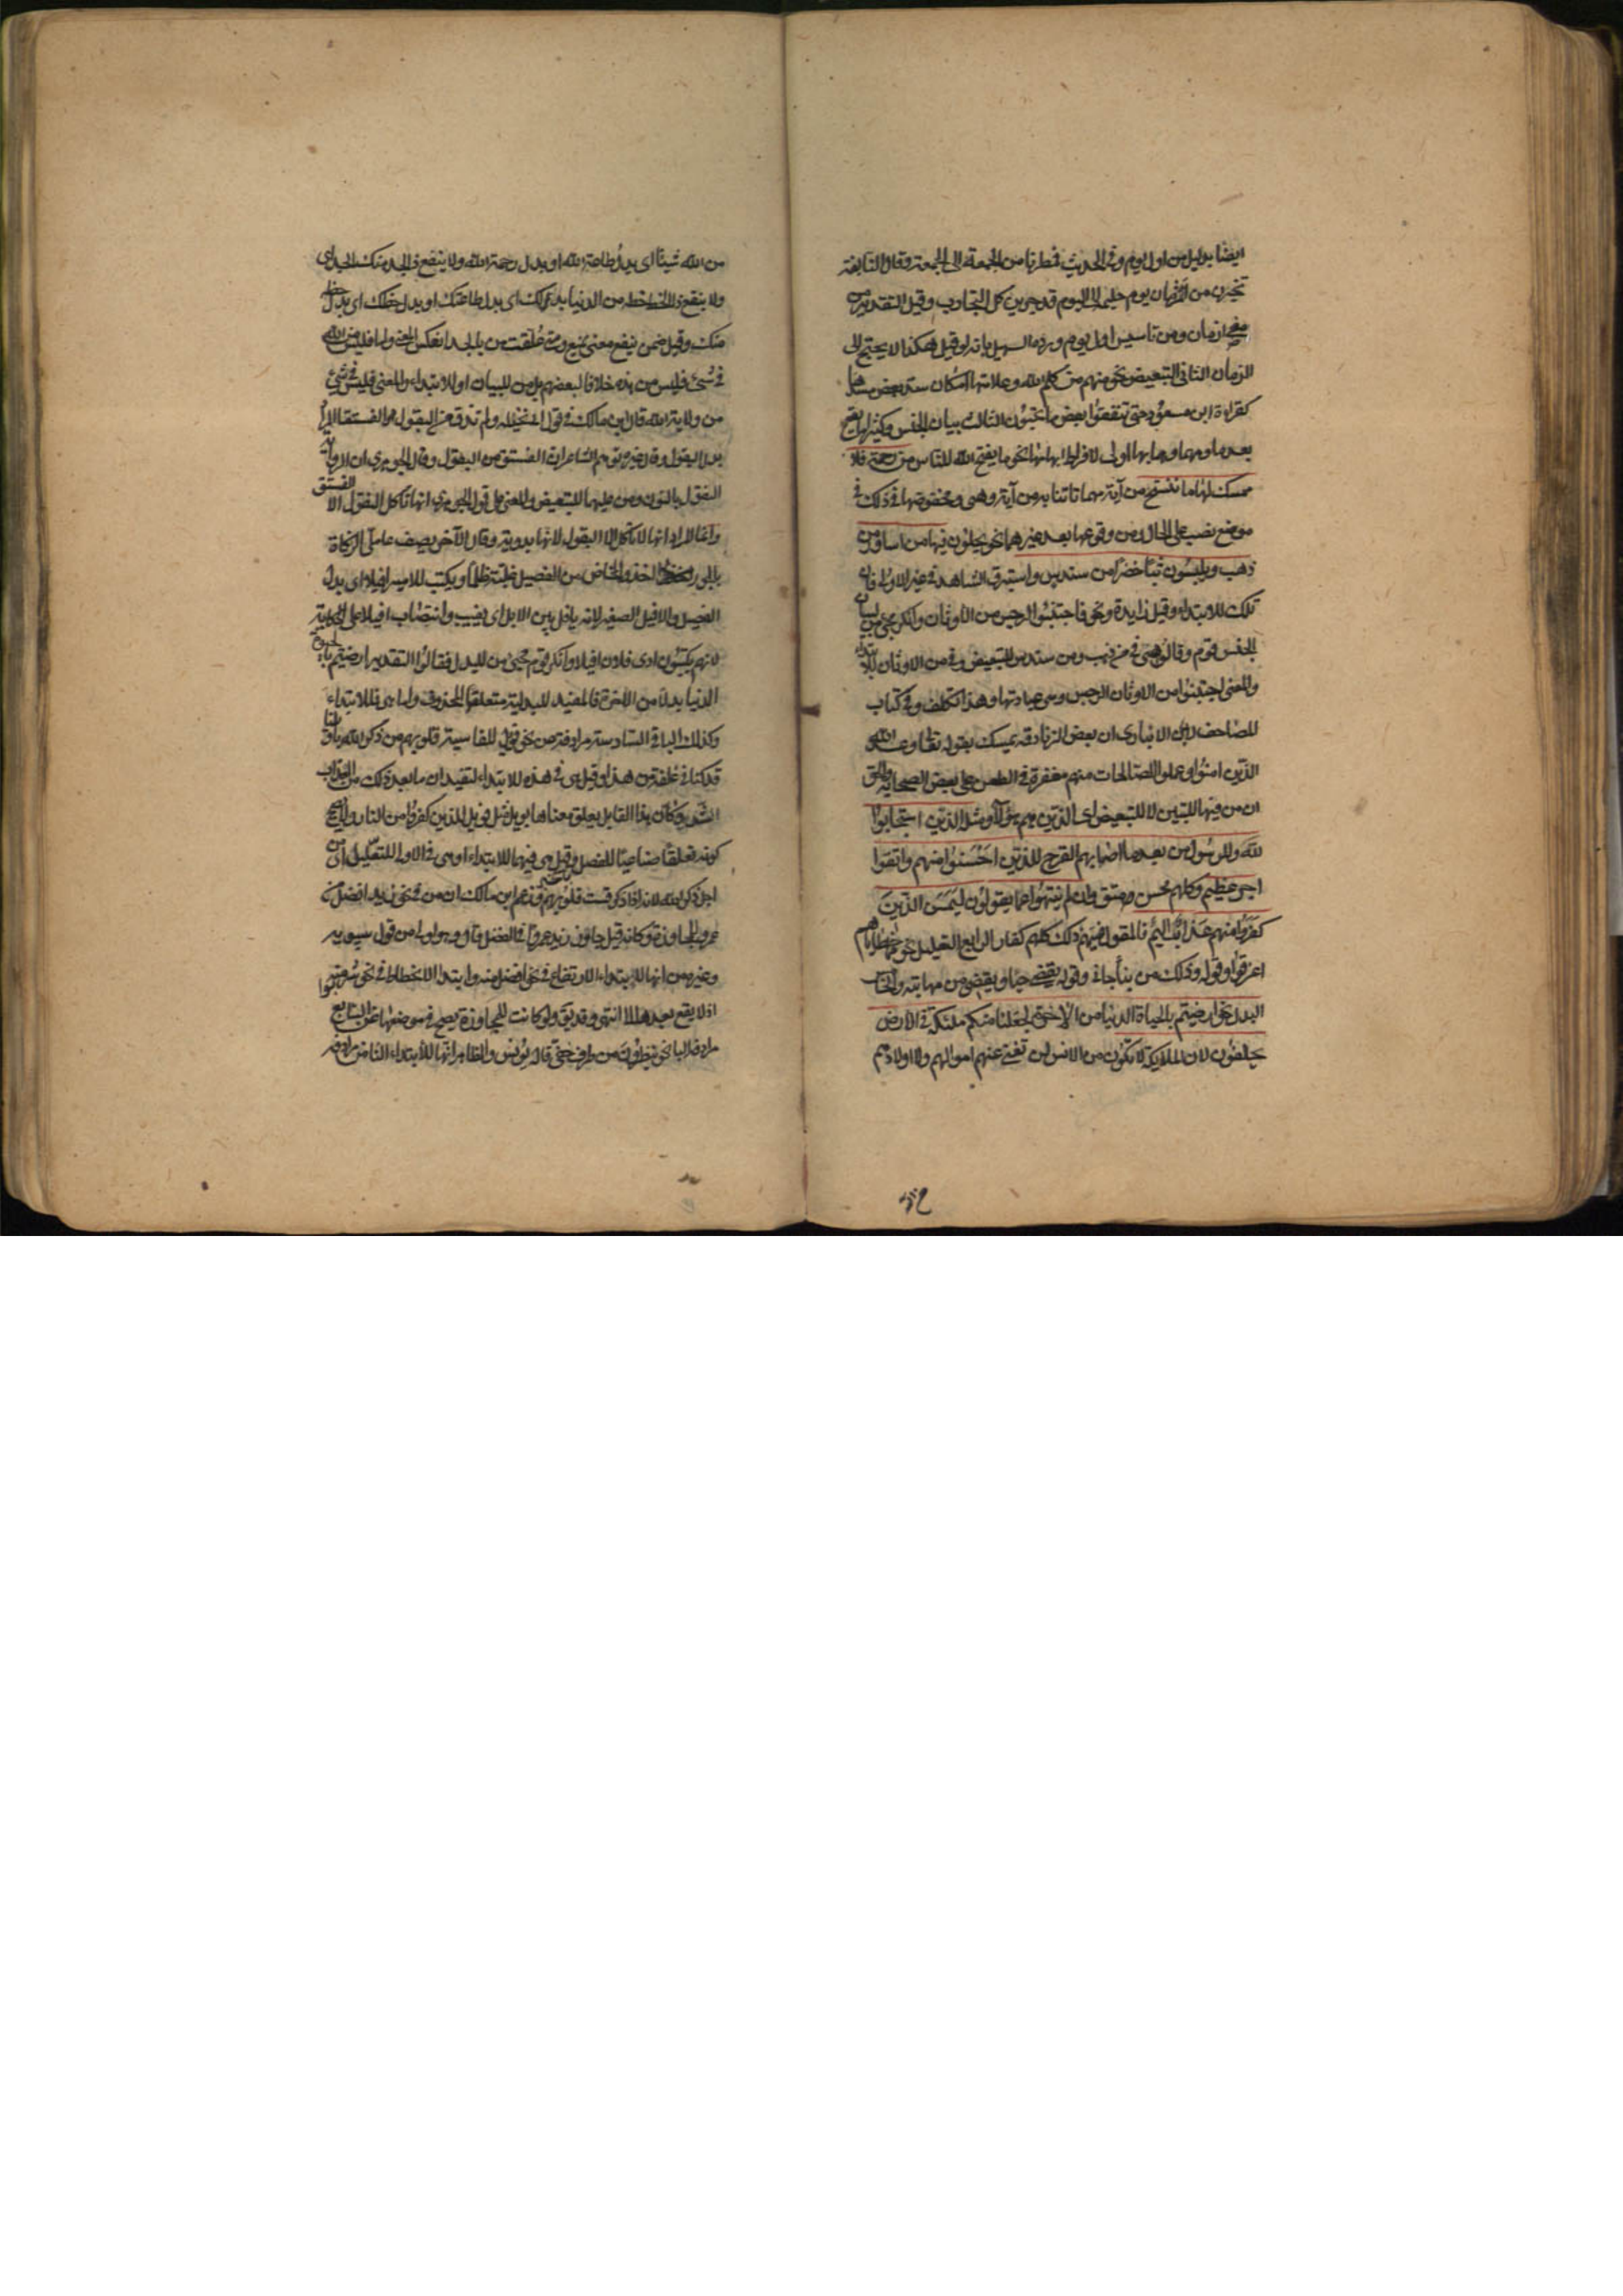 ايضا بدليل من اول يوم وفى الحديث فمطرنا من الجمعة الى الجمعة وقال النابغة
تخيرن من ازمان يوم حليمة الى اليوم قد جربن كل التجارب وقيل التقدير من
مضى ازمان ومن تاسيس اول يوم ورده السهيلى بانه لو قيل هكذا لاحتيج الى
الزمان الثانى التبعيض نحو منهم من كلم الله وعلامتها امكان سد بعض مسدها
كقراءة ابن مسعود حتى تنفقوا بعض ما تحبون الثالث بيان الجنس وكثيرا ما يقع
بعد ما ومهما وهما بها اولى لافراط ابهامهما نحو ما يفتح الله للناس من رحمة فلا
ممسك لها ما ننسخ من آية مهما تاتنا به من آية وهى ومخفوضها فى ذلك فى
موضع نصب على الحال ومن وقوعها بعد غيرهما نحو يحلون فيها من اساور من
ذهب ويلبسون ثيابا خضرا من سندس واستبرق الشاهد فى غير الاولى فان
تلك للابتداء وقيل زايدة ونحو فاجتنبوا الرجس من الاوثان وانكر مجئ من لبيان
الجنس قوم وقالوا هى فى من ذهب ومن سندس للتبعيض وفى من الاوثان للابتداء
والمعنى اجتنبوا من الاوثان الرجس وهى عبادتها وهذا تكلف وفى كتاب
المصاحف لابن الانبارى ان بعض الزنادقة تمسك بقوله تعالى وعد الله
الذين امنوا وعملوا الصالحات منهم مغفرة فى الطعن على بعض الصحابة والحق
ان من فيها للتبيين لا للتبعيض اى الذين هم هؤلاء ومثله الذين استجابوا
لله والرسول من بعد ما اصابهم القرح للذين احسنوا منهم واتقوا
اجر عظيم وكلهم محسن ومتق وان لم ينتهوا عما يقولون ليمسن الذين
كفروا منهم عذاب اليم فالمقول فيهم ذلك كلهم كفار الرابع التعليل نحو مما خطاياهم
اغرقوا وقوله وذلك من نبأ جاءنى وقوله يغضى حياء ويغضى من مهابته والخامس
البدل نحو ارضيتم بالحياة الدنيا من الاخرة لجعلنا منكم ملئكة فى الارض
يخلفون لان الملايكة لا تكون من الانس لن تغنى عنهم اموالهم ولا اولادهم
من الله شيئا اى بدل طاعة الله او بدل رحمة الله ولا ينفع ذا الجد منك الجد اى
ولا ينفع ذا الحظ حظه من الدنيا بذلك اى بدل طاعتك او بدل حظك اى بدل حظه
منك وقيل ضمن ينفع معنى يمنع ومتى علقت من بالجد انعكس المعنى واما فليس من الله
فى شئ فليس من هذه خلافا لبعضهم بل من للبيان او للابتداء والمعنى فليس فى شئ
من ولاية الله قال ابن مالك فى قول ابى نخيلة ولم تذق من البقول الفستقا المراد
بدل البقول وقال غيره توهم الشاعر ان الفستق من البقول وقال الجوهرى ان الرواية
النقول بالنون ومن عليهما للتبعيض والمعنى على قول الجوهرى انها تاكل النقول الا الفستق
وانما المراد انها لا تاكل الا البقول لانها بدوية وقال الآخر يصف عاملى الزكاة
بالجور اخذوا المخاض من الفصيل غلبة ظلما ويكتب للامير افيلا اى بدل
الفصيل والافيل الصغير لانه يافل بين الابل اى يغيب وانتصاب افيلا على الحكاية
لانهم يكتبون ادى فلان افيلا وانكر قوم مجئ من للبدل فقالوا التقدير ارضيتم بالحيوة
الدنيا بدلا من الاخرة فالمفيد للبدلية متعلقها المحذوف واما هى فللابتداء
وكذلك الباقى السادسة مرادفة عن نحو فويل للقاسية قلوبهم من ذكر الله ياويلنا
قد كنا فى غفلة من هذا وقيل هى فى هذه للابتداء لتفيد ان ما بعد ذلك من العذاب
اشد وكأن هذا القايل يعلق معناها بويل مثل فويل للذين كفروا من النار ولا يصح
كونه تعلقا صناعيا للفصل وقيل هى فيهما للابتداء او هى فى الاولى للتعليل اى من
اجل ذكر الله لانه اذا ذكر قست قلوبهم وزعم ابن مالك ان من فى نحو زيد افضل من
عمرو للمجاوزة وكانه قيل جاوز زيد عمروا فى الفضل قال وهو اولى من قول سيبويه
وغيره من انها للابتداء الارتفاع فى نحو افضل منه وابتداء الانحطاط فى نحو شر منه
اذ لا يقع بعدها الى انتهى وقد يقال ولو كانت للمجاوزة يصح فى موضعها عن السابع
مرادفة الباء نحو ينظرون من طرف خفى قاله يونس والظاهر انها للابتداء الثامن مرادفة